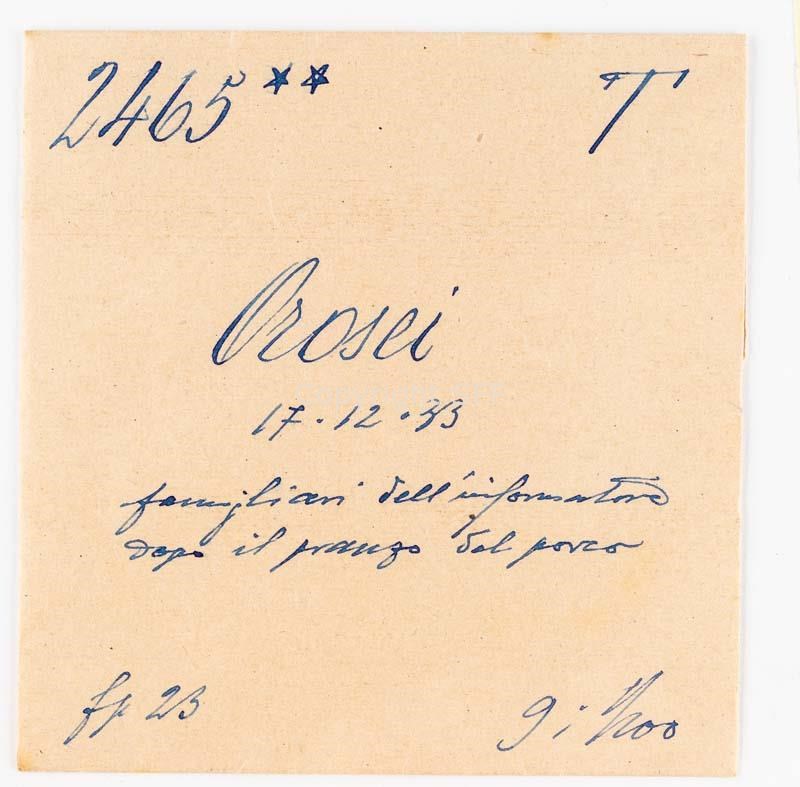 2465** T
Orosei
17.12.33
famigliari dell'informatore
dopo il pranzo del porco
fp 23
9 i